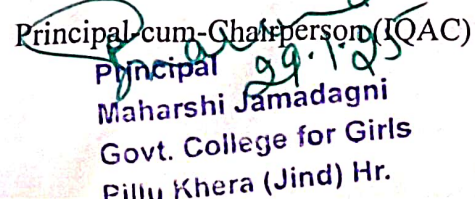 Principal-cum-Chairperson (IQAC)
Principal 29.1.25
Maharshi Jamadagni
Govt. College for Girls
Pillu Khera (Jind) Hr.